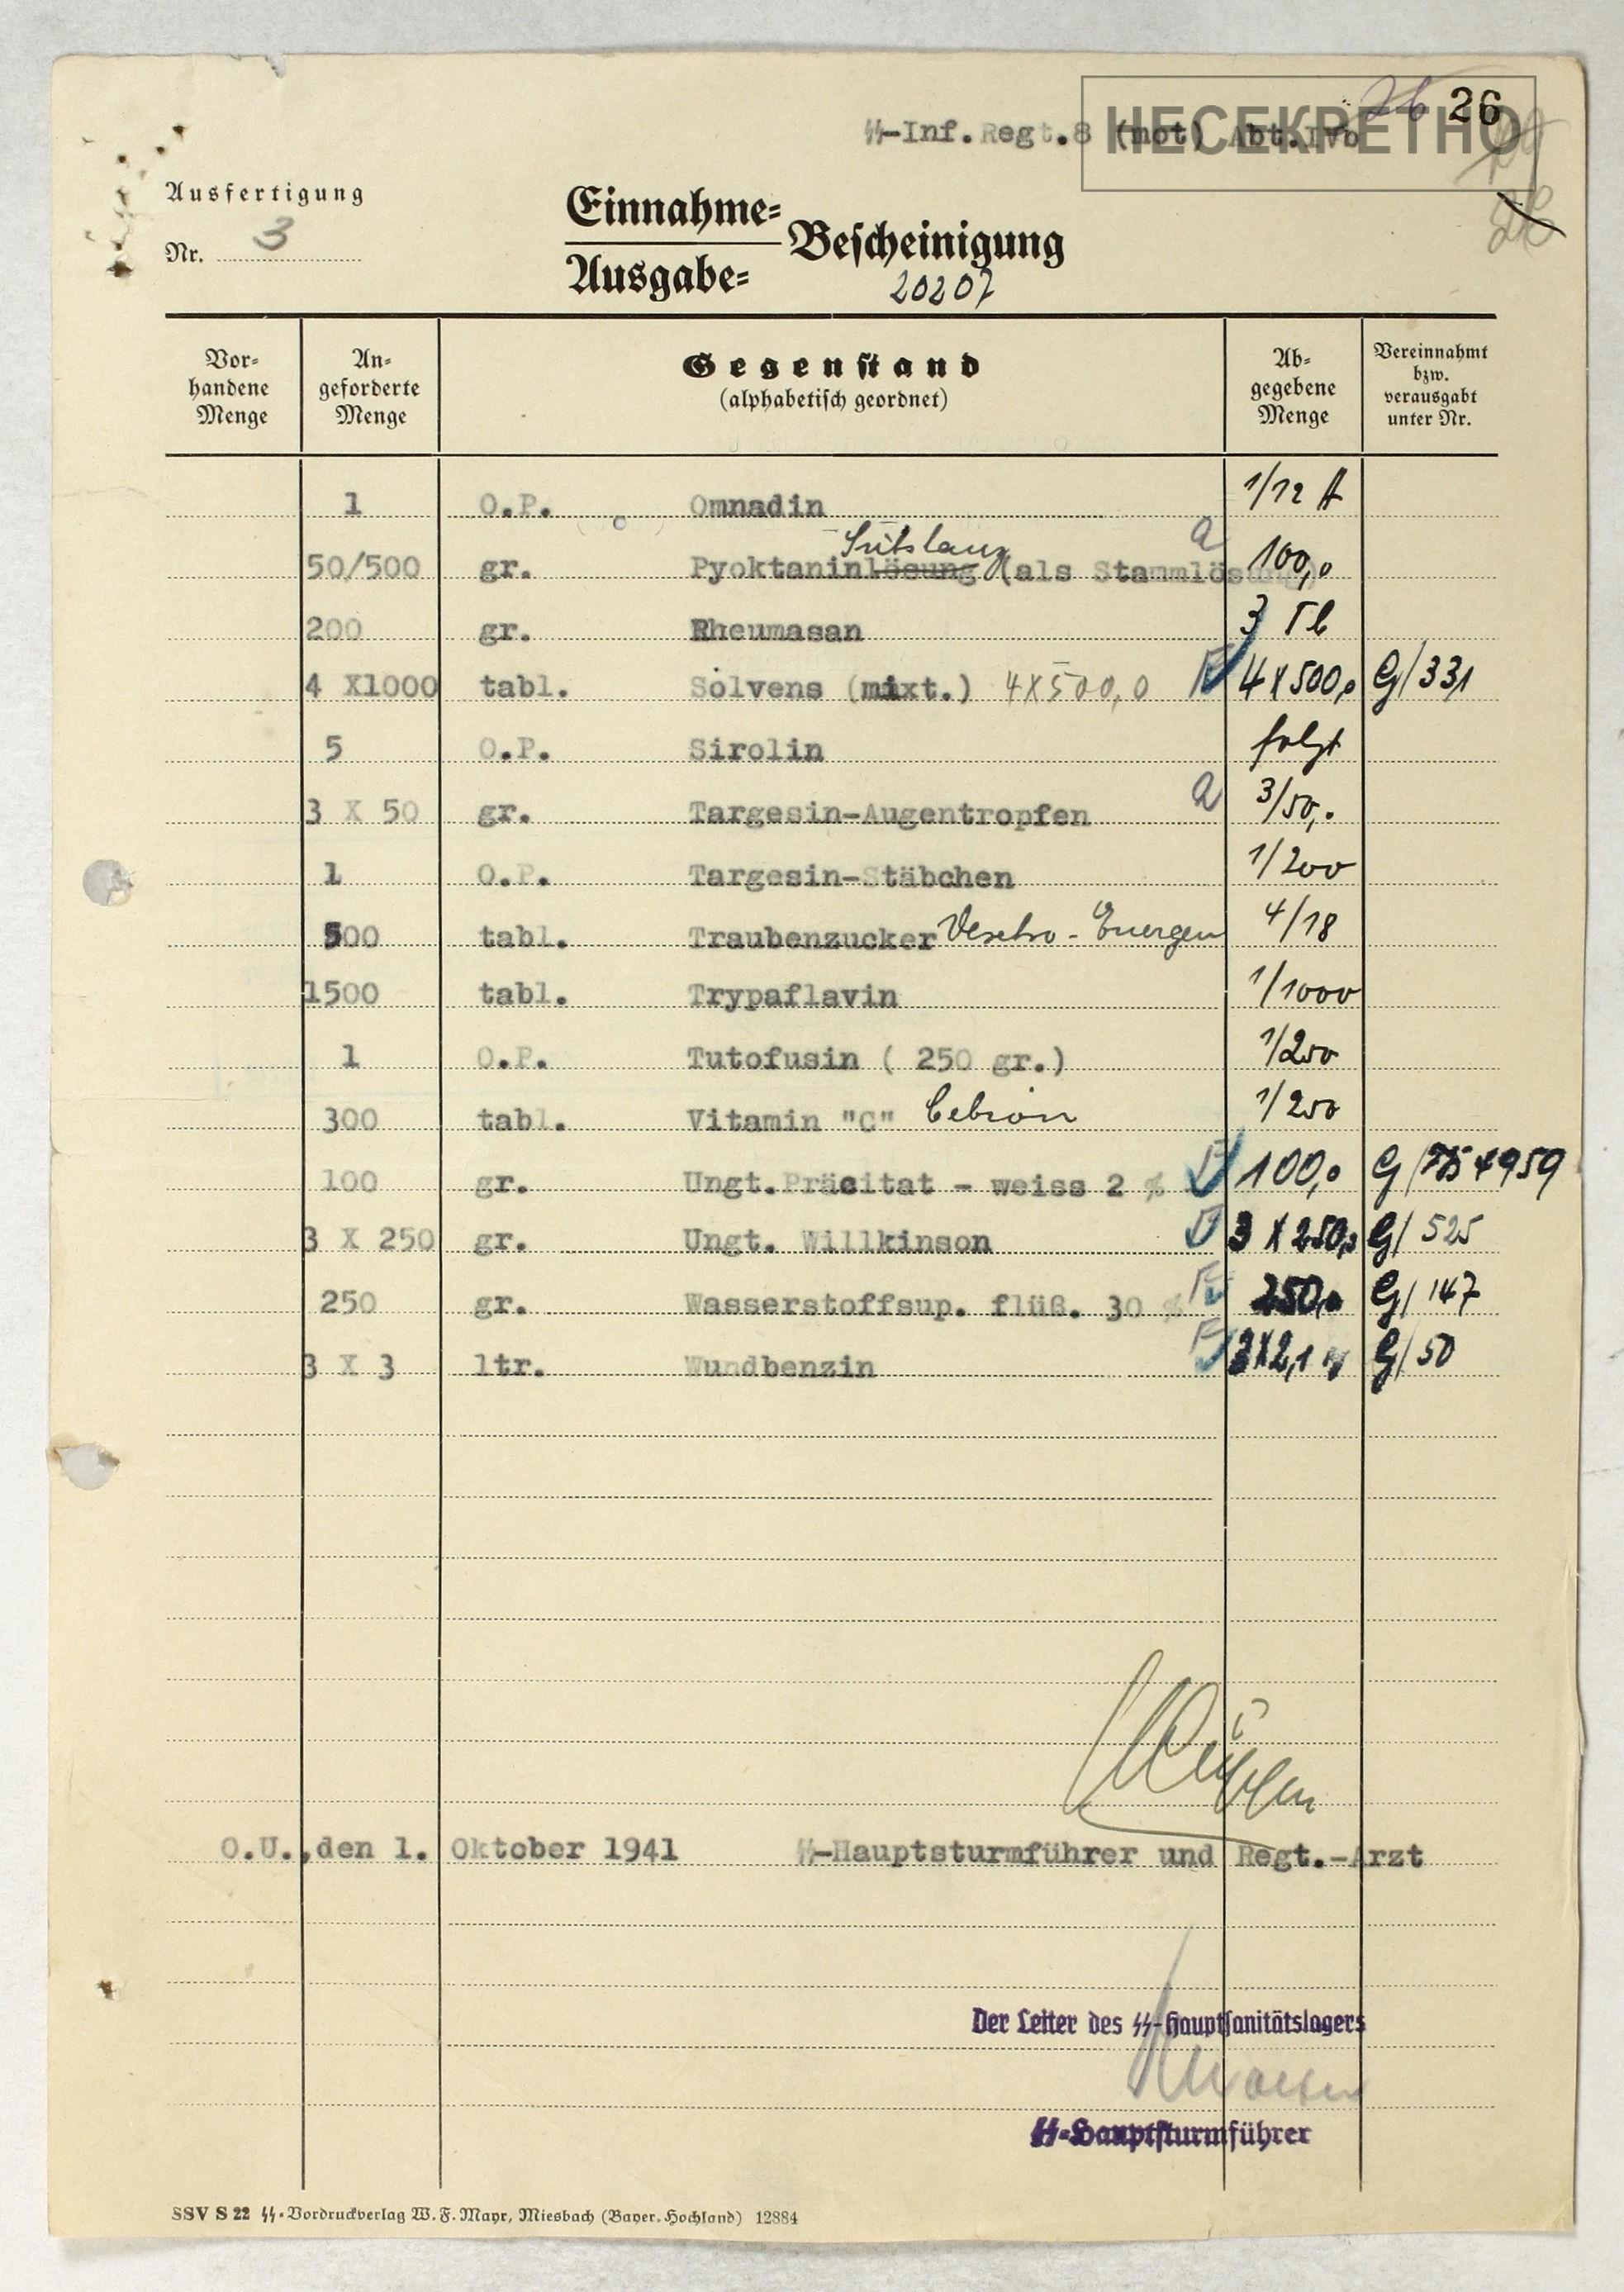 26 26
НЕСЕКРЕТНО
SS-Inf.Regt.8 (mot) Abt.IVb
Ausfertigung
Nr. 3
Einnahme=
Ausgabe=
Bescheinigung
20207
Vor-
handene
Menge
An-
geforderte
Menge
Gegenstand
(alphabetisch geordnet)
Ab-
gegebene
Menge
Vereinnahmt
bzw.
verausgabt
unter Nr.
1 O.P. Omnadin 1/12 A
Substanz
50/500 gr. Pyoktaninlösung (als Stammlösung) a 100,0
200 gr. Rheumasan 3 Tb
4 X1000 tabl. Solvens (mixt.) 4X500,0 4X500,0 G/331
5 O.P. Sirolin folgt
3 X 50 gr. Targesin-Augentropfen a 3/50,0
1 O.P. Targesin-Stäbchen 1/200
500 tabl. Traubenzucker Dextro-Energen 4/18
1500 tabl. Trypaflavin 1/1000
1 O.P. Tutofusin ( 250 gr.) 1/250
300 tabl. Vitamin "C" Cebion 1/250
100 gr. Ungt.Präcitat - weiss 2 % 100,0 G/ 4959
3 X 250 gr. Ungt. Willkinson 3 X 250,0 G/ 525
250 gr. Wasserstoffsup. flüß. 30 % 250,0 G/ 147
3 X 3 ltr. Wundbenzin 3X2,1 G/50
O.U.,den 1. Oktober 1941 SS-Hauptsturmführer und Regt.-Arzt
Der Leiter des SS-Hauptsanitätslagers
SS-Hauptsturmführer
SSV S 22 SS-Vordruckverlag W. F. Mayr, Miesbach (Bayer. Hochland) 12884